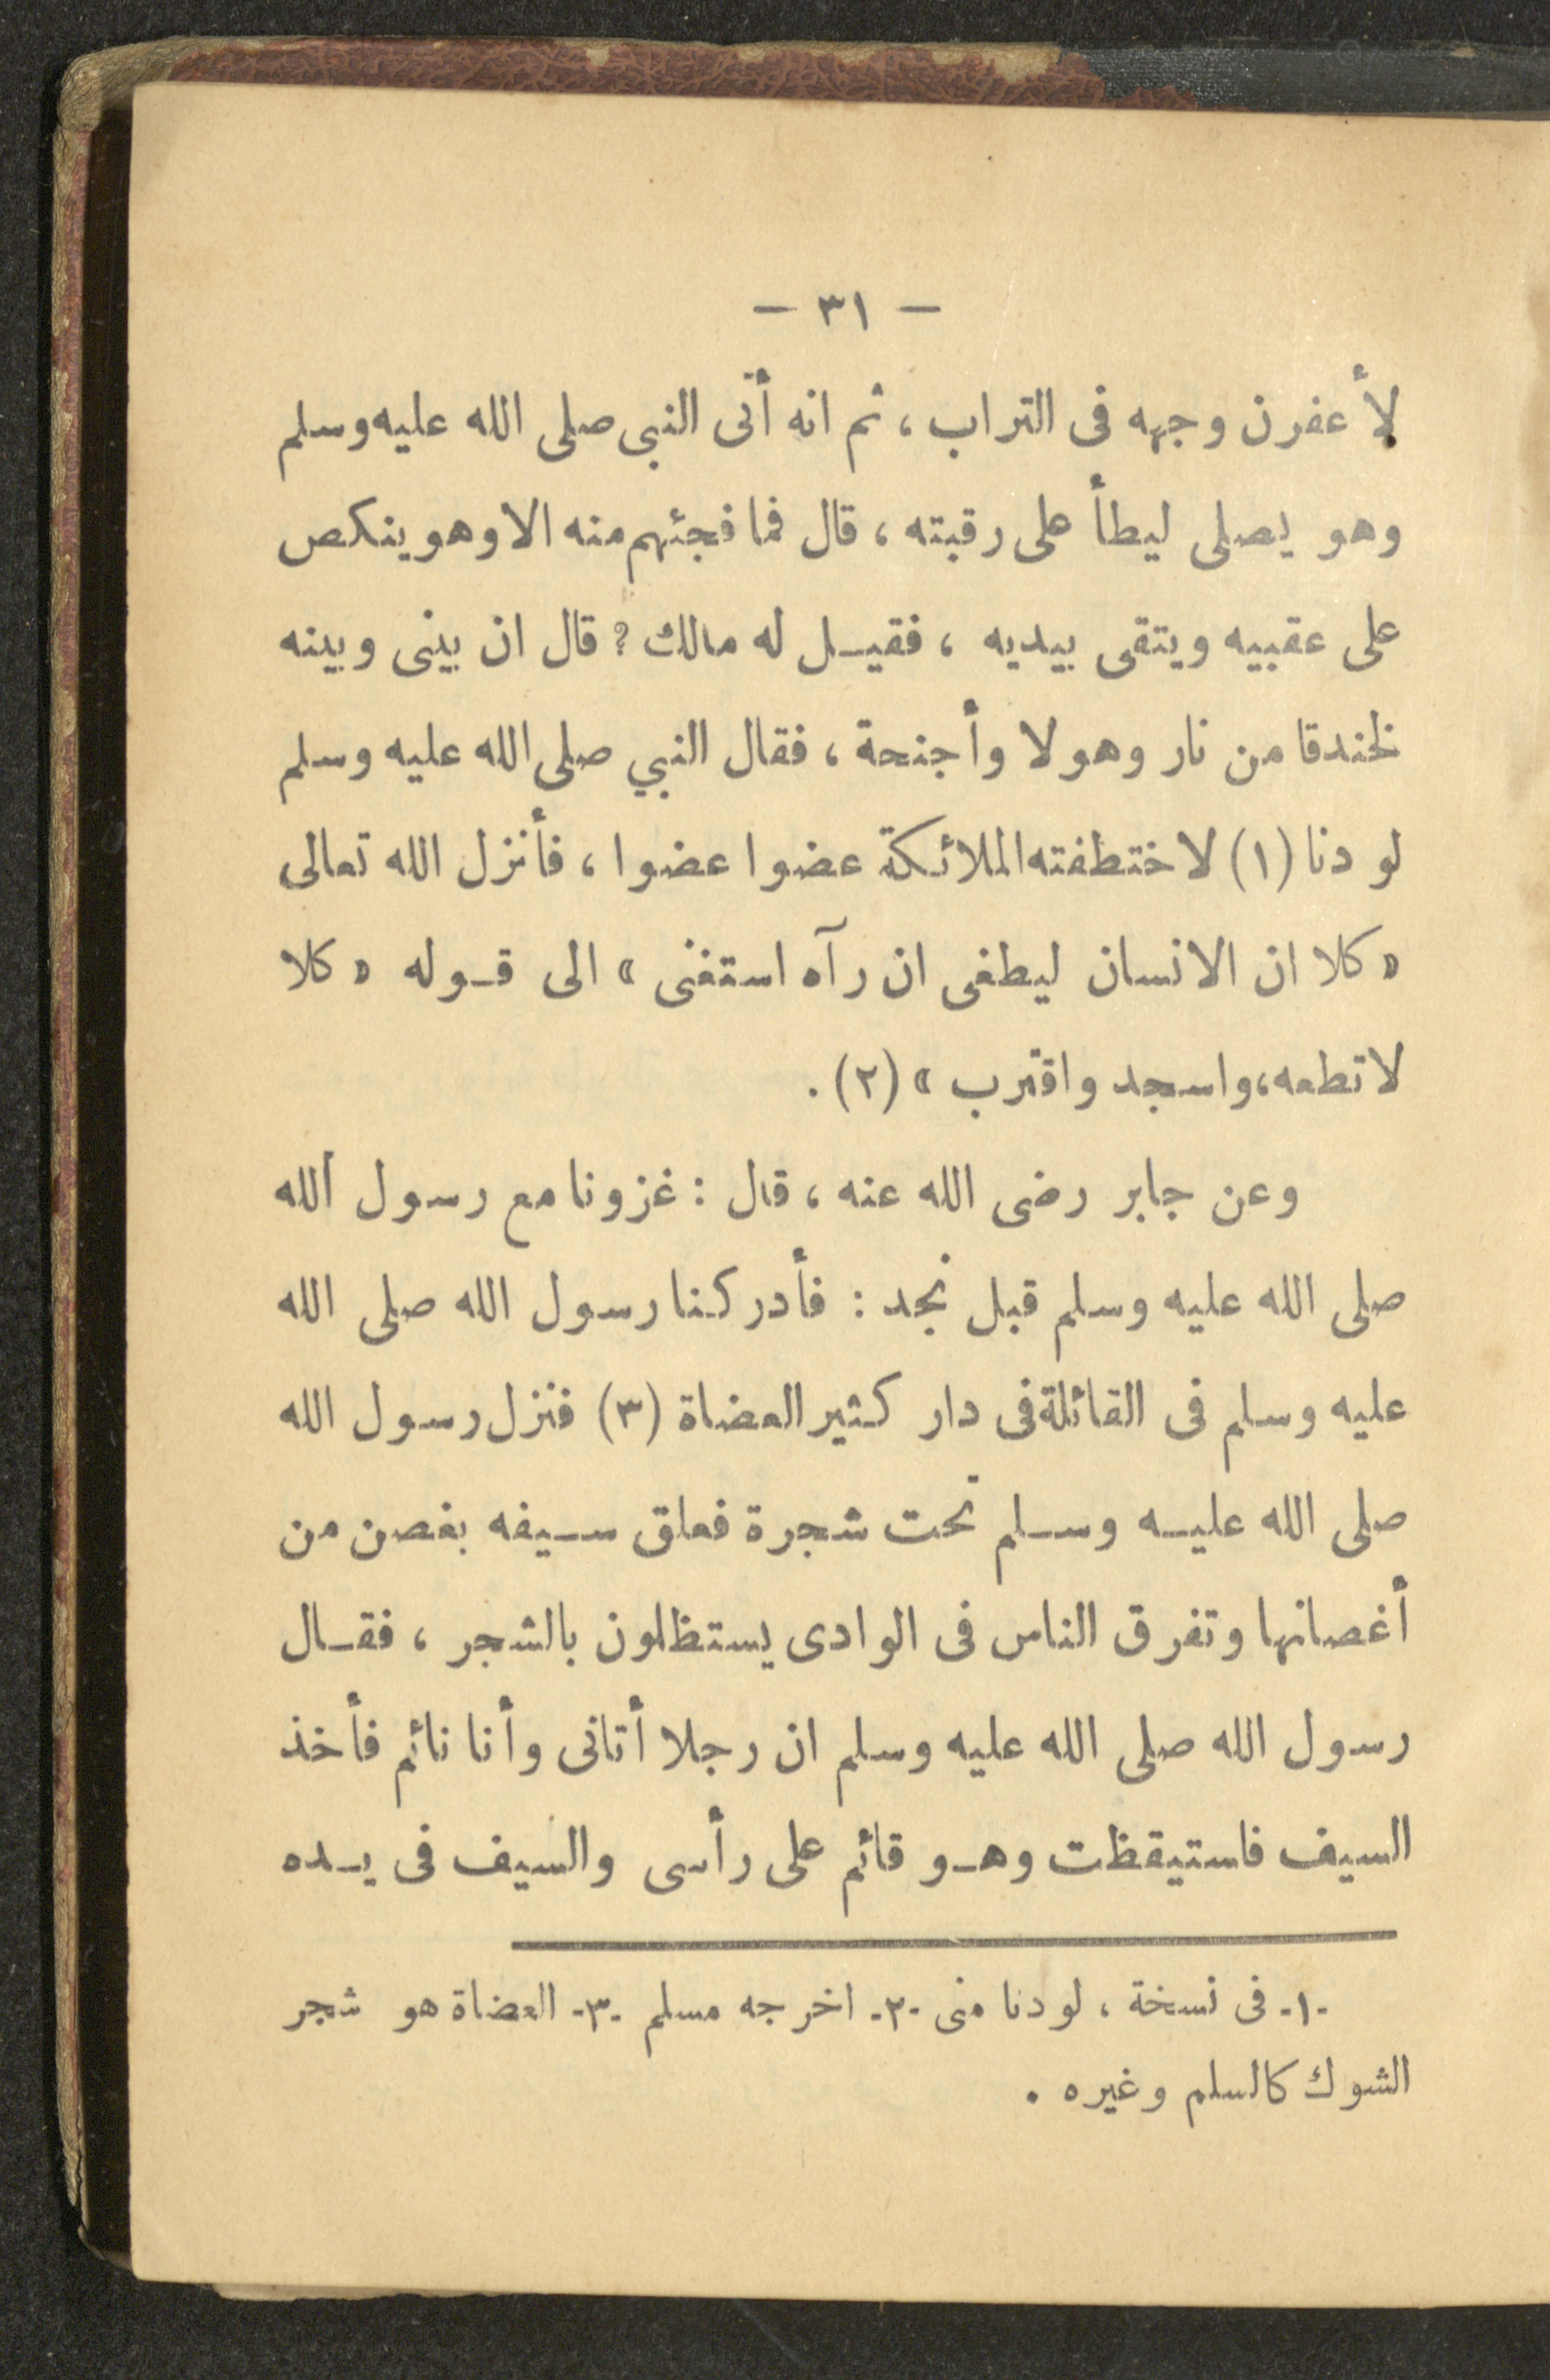 — ٣١ —
لأعفرن وجهه فى التراب ، ثم انه أتى النبى صلى الله عليه وسلم
وهو يصلى ليطأ على رقبته ، قال فما فجئهم منه الا وهو ينكص
على عقبيه ويتقى بيديه ، فقيل له مالك ؟ قال ان بينى وبينه
لخندقا من نار وهولا وأجنحة ، فقال النبي صلى الله عليه وسلم
لو دنا (١) لاختطفته الملائكة عضوا عضوا ، فأنزل الله تعالى
« كلا ان الانسان ليطغى ان رآه استغنى » الى قوله « كلا
لا تطعه، واسجد واقترب » (٢) .
وعن جابر رضى الله عنه ، قال : غزونا مع رسول الله
صلى الله عليه وسلم قبل نجد : فأدركنا رسول الله صلى الله
عليه وسلم فى القائلة فى دار كثير العضاة (٣) فنزل رسول الله
صلى الله عليه وسلم تحت شجرة فعلق سيفه بغصن من
أغصانها وتفرق الناس فى الوادى يستظلون بالشجر ، فقال
رسول الله صلى الله عليه وسلم ان رجلا أتانى وأنا نائم فأخذ
السيف فاستيقظت وهو قائم على رأسى والسيف فى يده
-١- فى نسخة ، لو دنا منى -٢- اخرجه مسلم -٣- العضاة هو شجر
الشوك كالسلم وغيره .